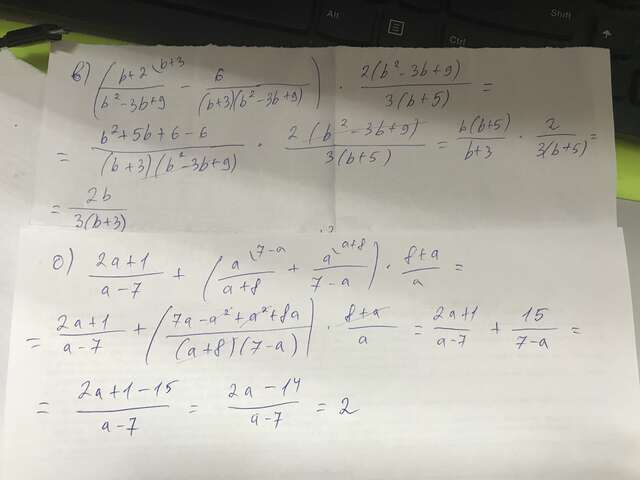 Alt
Ctrl
в) ((b+2)^(b+3)/(b²-3b+9) - 6/((b+3)(b²-3b+9))) · 2(b²-3b+9)/(3(b+5)) =
= (b²+5b+6-6)/((b+3)(b²-3b+9)) · 2(b²-3b+9)/(3(b+5)) = b(b+5)/(b+3) · 2/(3(b+5)) =
= 2b/(3(b+3))
о) (2a+1)/(a-7) + (a^(7-a)/(a+8) + a^(a+8)/(7-a)) · (8+a)/a =
= (2a+1)/(a-7) + ((7a-a²+a²+8a)/((a+8)(7-a))) · (8+a)/a = (2a+1)/(a-7) + 15/(7-a) =
= (2a+1-15)/(a-7) = (2a-14)/(a-7) = 2